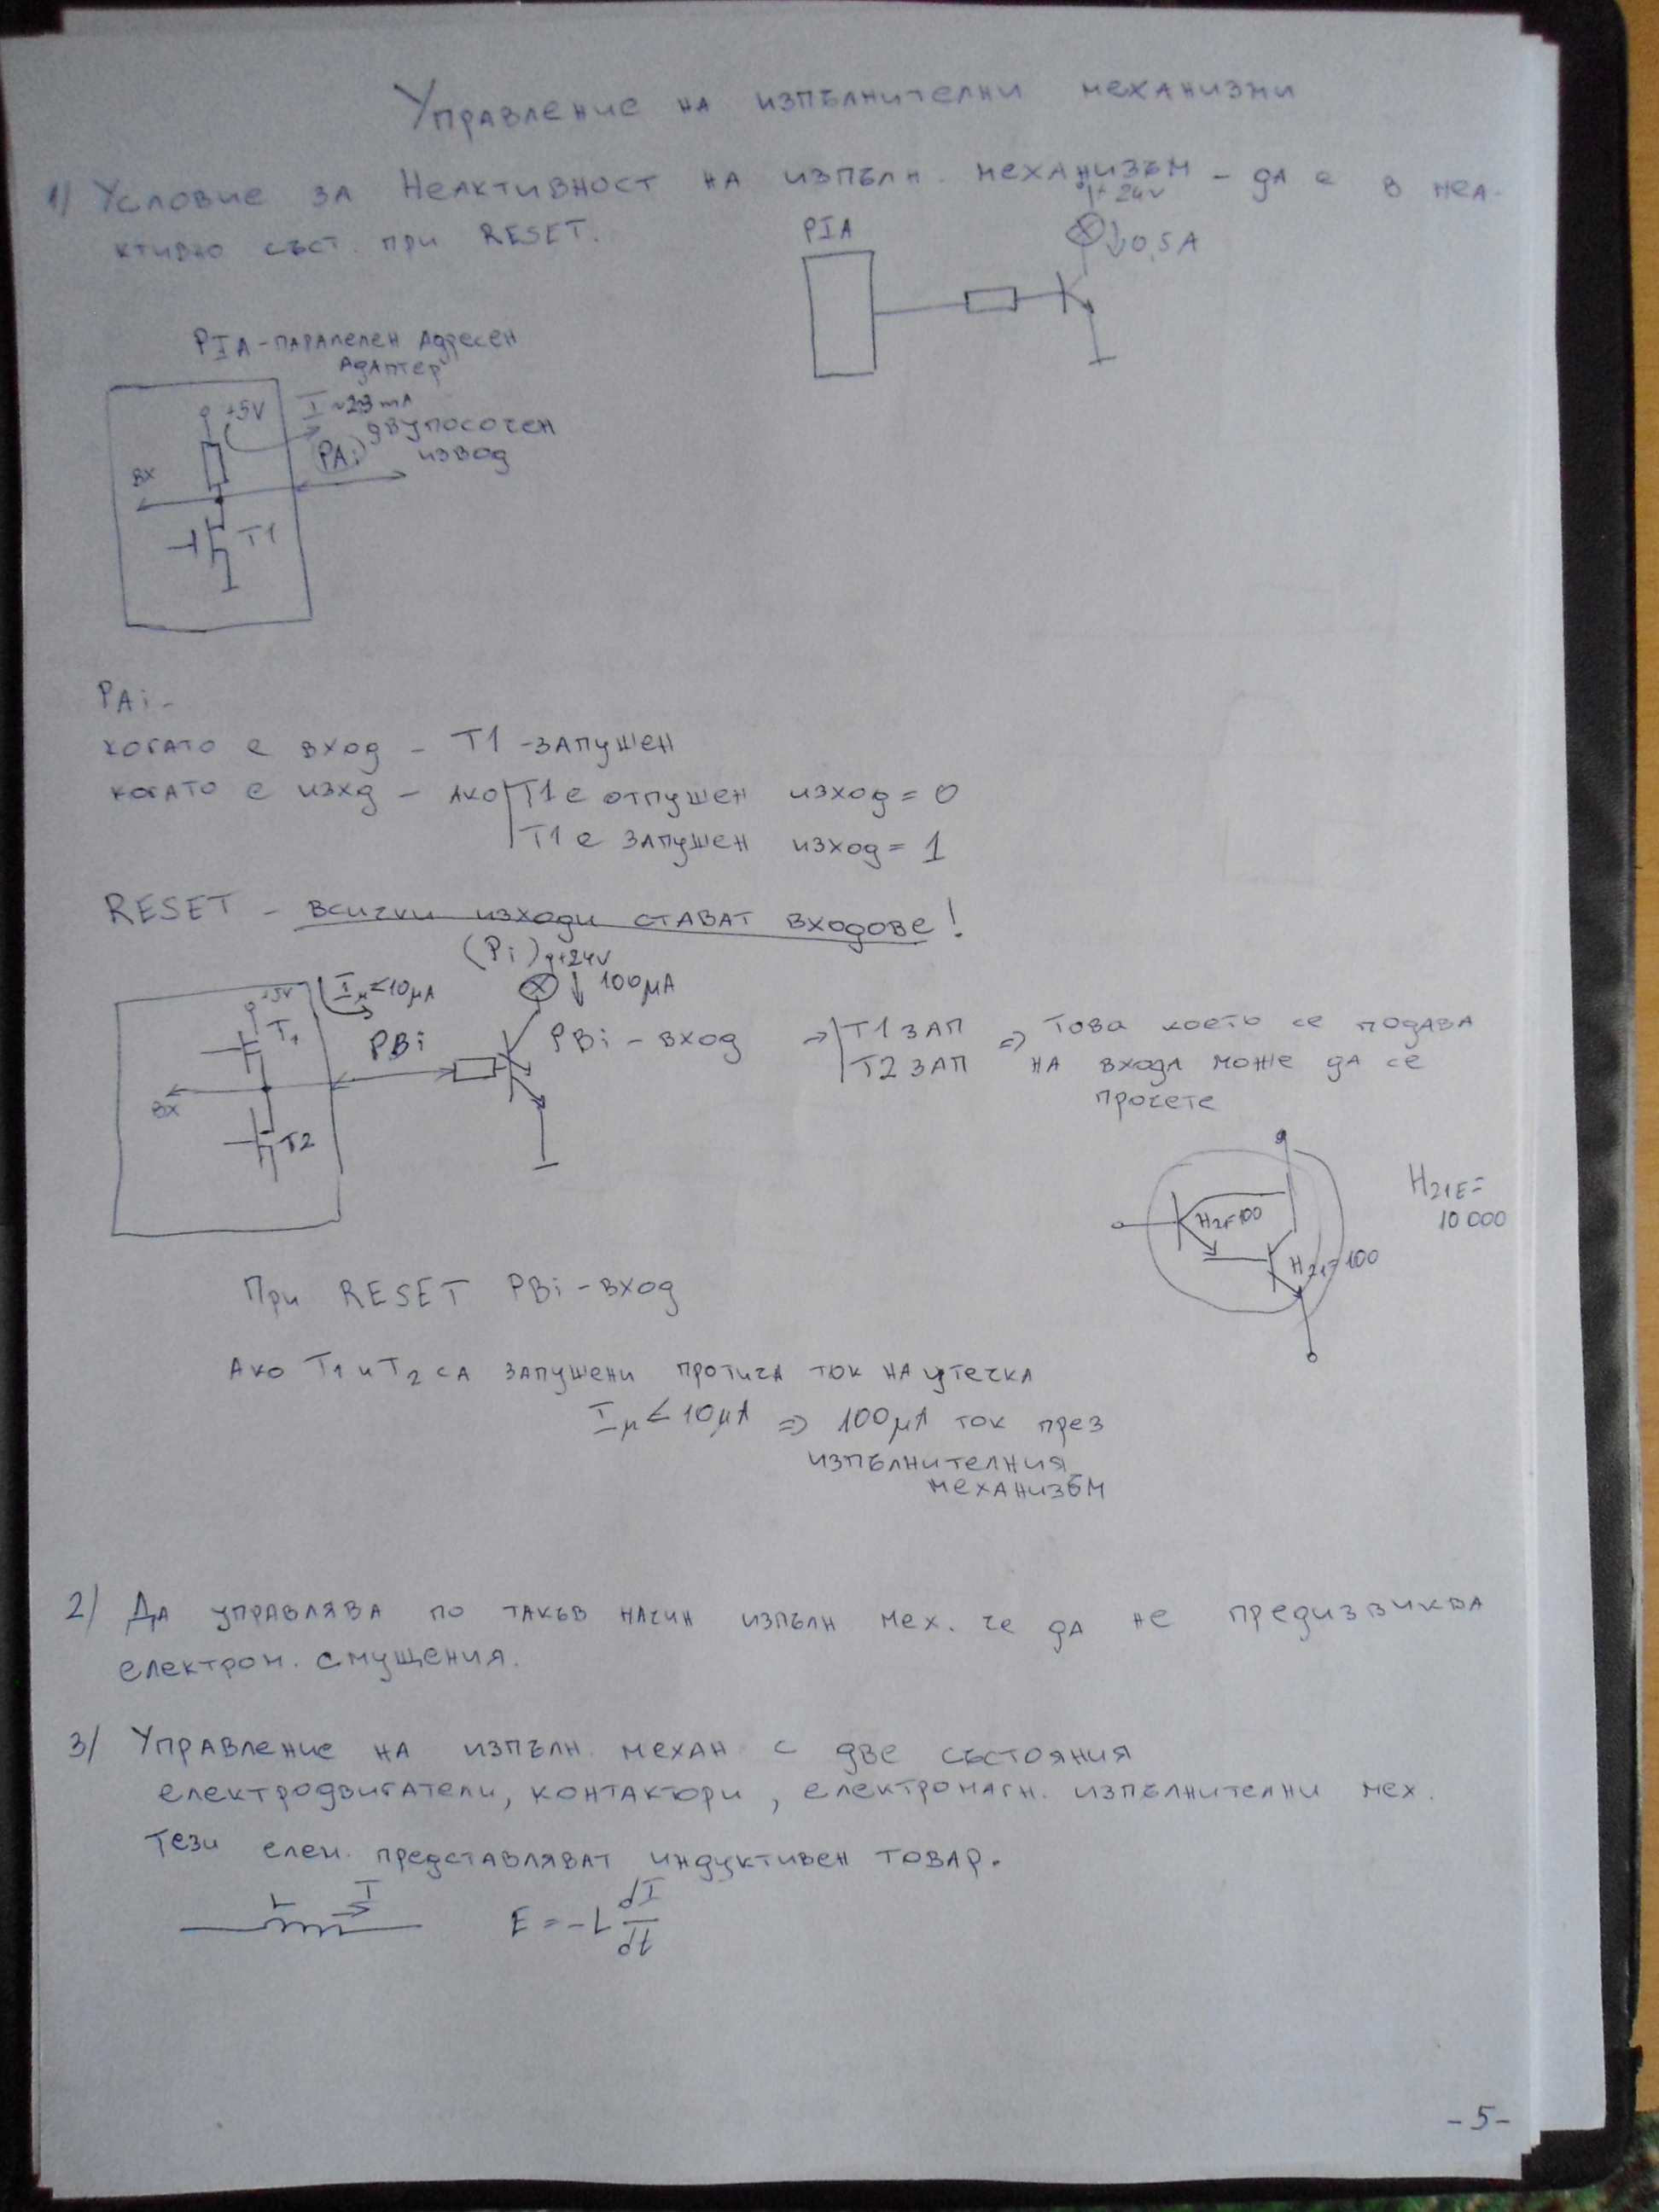 Управление на изпълнителни механизми
1) Условие за Неактивност на изпълн. механизъм – да е в неа-
ктивно съст. при RESET.
PIA
+24V
0,5A
PIA - паралелен Адресен
Адаптер
+5V
I ~ 2,3 mA
двупосочен
PAi
извод
вх
T1
PAi -
когато е вход – T1 - запушен
когато е изхд – ако T1 е отпушен изход = 0
T1 е запушен изход = 1
RESET – всички изходи стават входове!
(Pi)
+24V
100µA
+5V
Iµ ≤ 10µA
T1
PBi
вх
T2
PBi – вход → T1 ЗАП ⇒ Това което се подава
T2 ЗАП на входа може да се
прочете
H21=100
H21=100
H21E=
10 000
При RESET PBi – вход
Ако T1 и T2 са запушени протича ток на утечка
Iµ ≤ 10µA ⇒ 100µA ток през
изпълнителния
механизъм
2) Да управлява по такъв начин изпълн мех. че да не предизвиква
електром. смущения.
3) Управление на изпълн. механ с две състояния
електродвигатели, контактори, електромагн. изпълнителни мех.
Тези елем. представляват индуктивен товар.
L
I
E = -L dI/dt
- 5 -